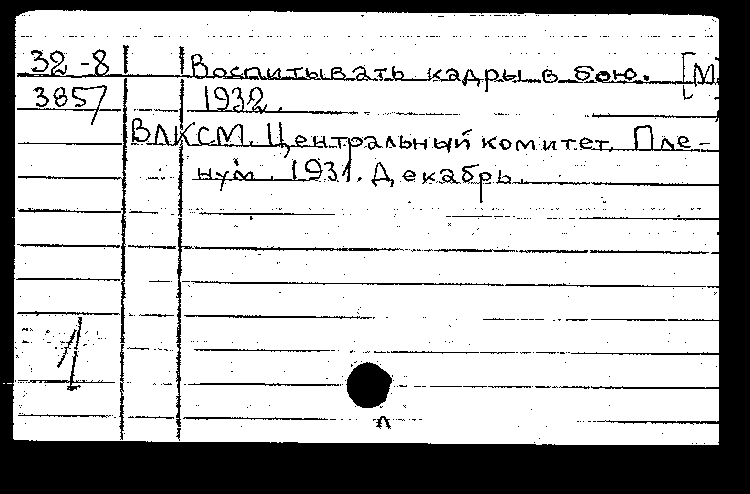 32-8 Воспитывать кадры в бою. [М.
3857 1932.
ВЛКСМ. Центральный комитет. Пле-
нум. 1931. Декабрь.
1
л